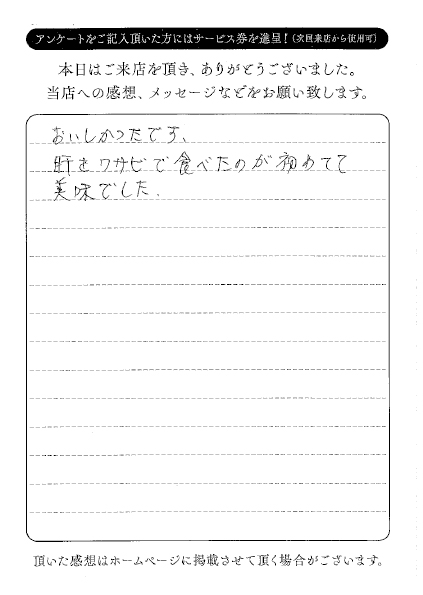 アンケートをご記入頂いた方にはサービス券を進呈！（次回来店から使用可）
本日はご来店を頂き、ありがとうございました。
当店への感想、メッセージなどをお願い致します。
おいしかったです、
肝をワサビで食べたのが初めてで
美味でした．
頂いた感想はホームページに掲載させて頂く場合がございます。